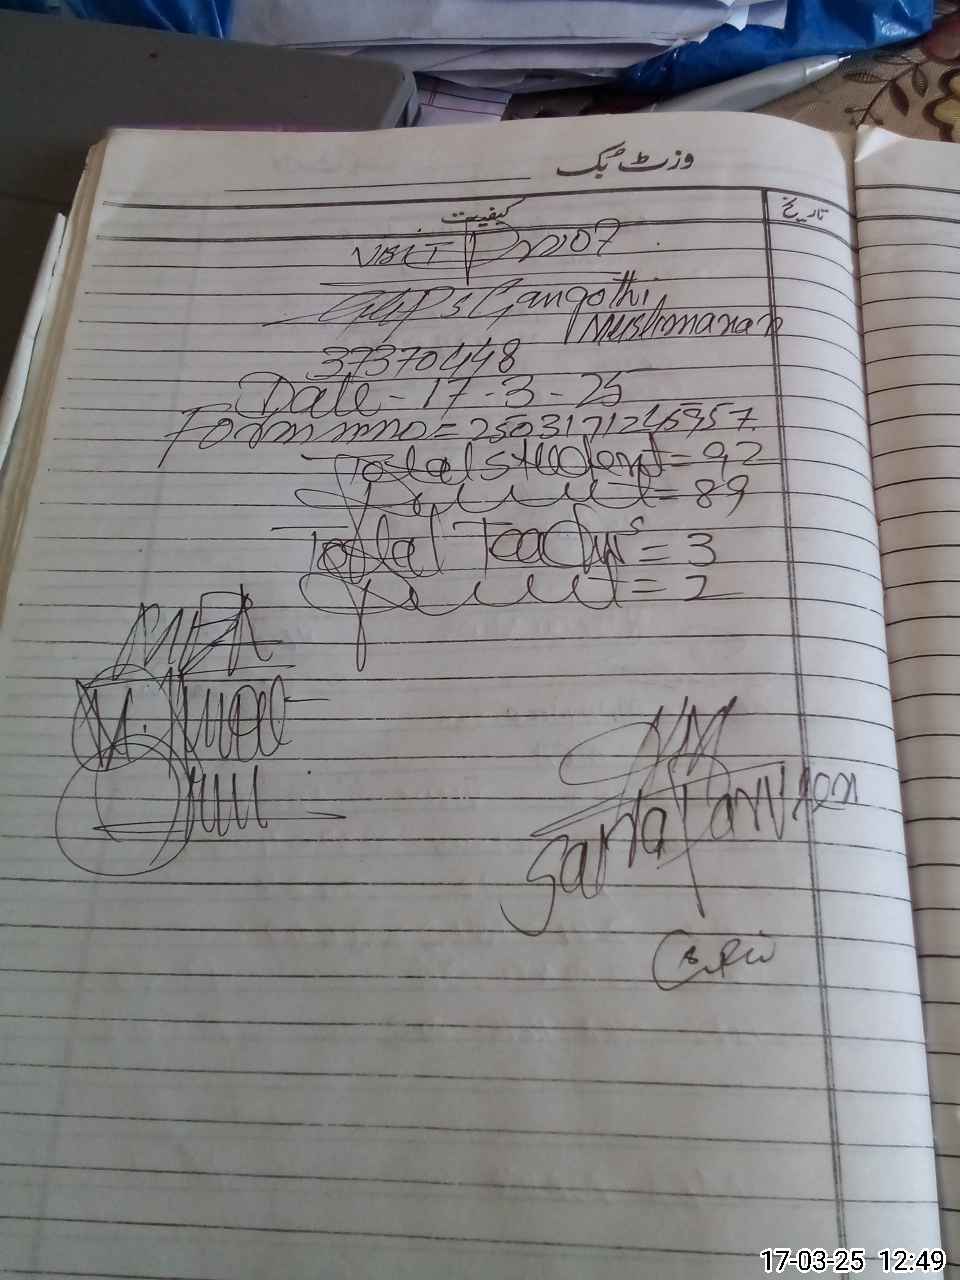 وزٹ بُک
کیفیت
تاریخ
Visit
GGPS Gangothi
Mushmanan
37370448
Date - 17-3-25
Form no = 2503171245957
Total student = 92
Present = 89
Total Teachers = 3
Present = 2
MEA
17-03-25 12:49